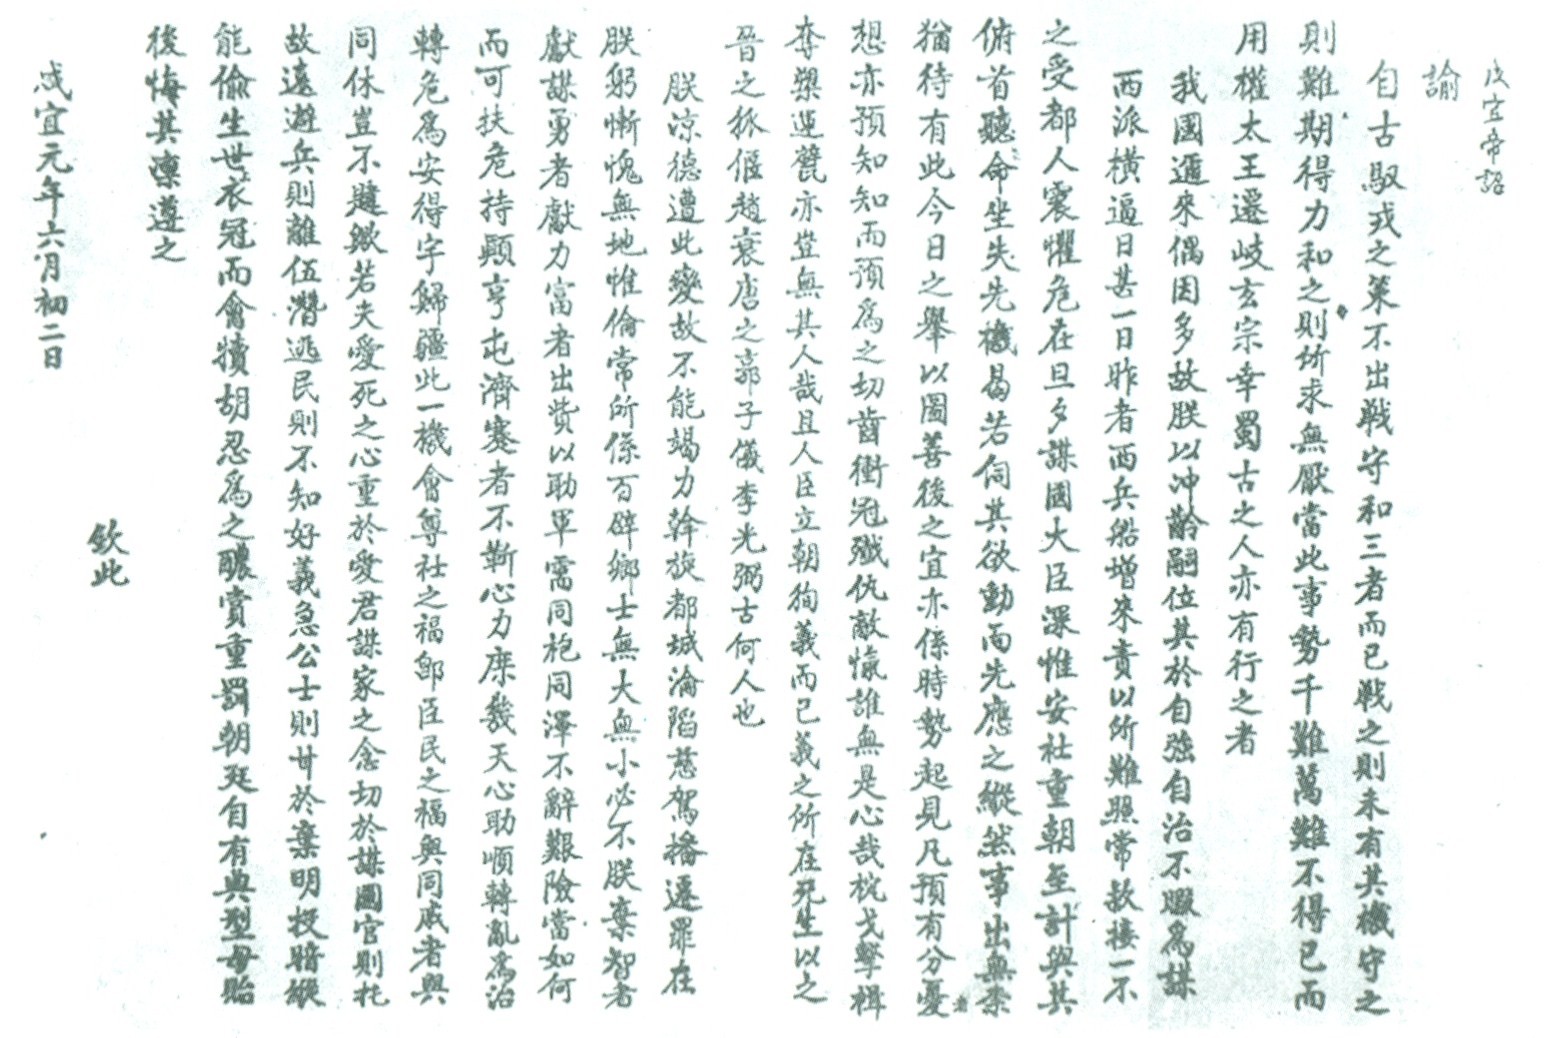 咸宜帝詔
諭
自古馭戎之策不出戰守和三者而已戰之則未有其機守之
則難期得力和之則所求無厭當此事勢千難萬難不得已而
用權太王遷岐玄宗幸蜀古之人亦有行之者
我國邇來偶因多故朕以沖齡嗣位其於自強自治不暇為謀
西派橫逼日甚一日昨者西兵船增來責以所難照常款接一不
之受都人震懼危在旦夕謀國大臣深惟安社重朝至計與其
俯首聽命坐失先機曷若伺其欲動而先應之縱然事出無柰
猶待有此今日之舉以圖善後之宜亦係時勢起見凡預有分憂者
想亦預知知而預為之切齒衝冠殲仇敵愾誰無是心哉枕戈擊楫
奪槊運甓亦豈無其人哉且人臣立朝狥義而已義之所在死生以之
晉之狐偃趙衰唐之郭子儀李光弼古何人也
朕凉德遭此變故不能竭力斡旋都城淪陷慈駕播遷罪在
朕躬慚愧無地惟倫常所係百辟鄉士無大無小必不朕棄智者
獻謀勇者獻力富者出貲以助軍需同袍同澤不辭艱險當如何
而可扶危持顛亨屯濟蹇者不靳心力庶幾天心助順轉亂為治
轉危為安得字歸疆此一機會尊社之福卽臣民之福與同戚者與
同休豈不韙歟若夫愛死之心重於愛君謀家之念切於謀國官則托
故遠避兵則離伍潛逃民則不知好義急公士則甘於棄明投暗縱
能偷生世衣冠而會犢胡忍為之醲賞重罰朝廷自有典型毋貽
後悔其凛遵之
欽此
咸宜元年六月初二日